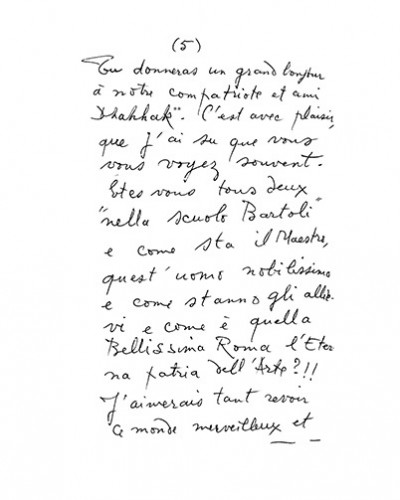 (5)
Tu donneras un grand bonjour
à nôtre compatriote et ami
Dhahhak". C'est avec plaisir,
que j'ai su que vous
vous voyez souvent.
Êtes vous tous deux
"nella scuola Bartoli"
e come sta il Maestro,
quest'uomo nobilissimo
e come stanno gli allie-
vi e come è quella
Bellissima Roma l'Eter
na patria dell'Arte?!!
J'aimerais tant revoir
ce monde merveilleux et